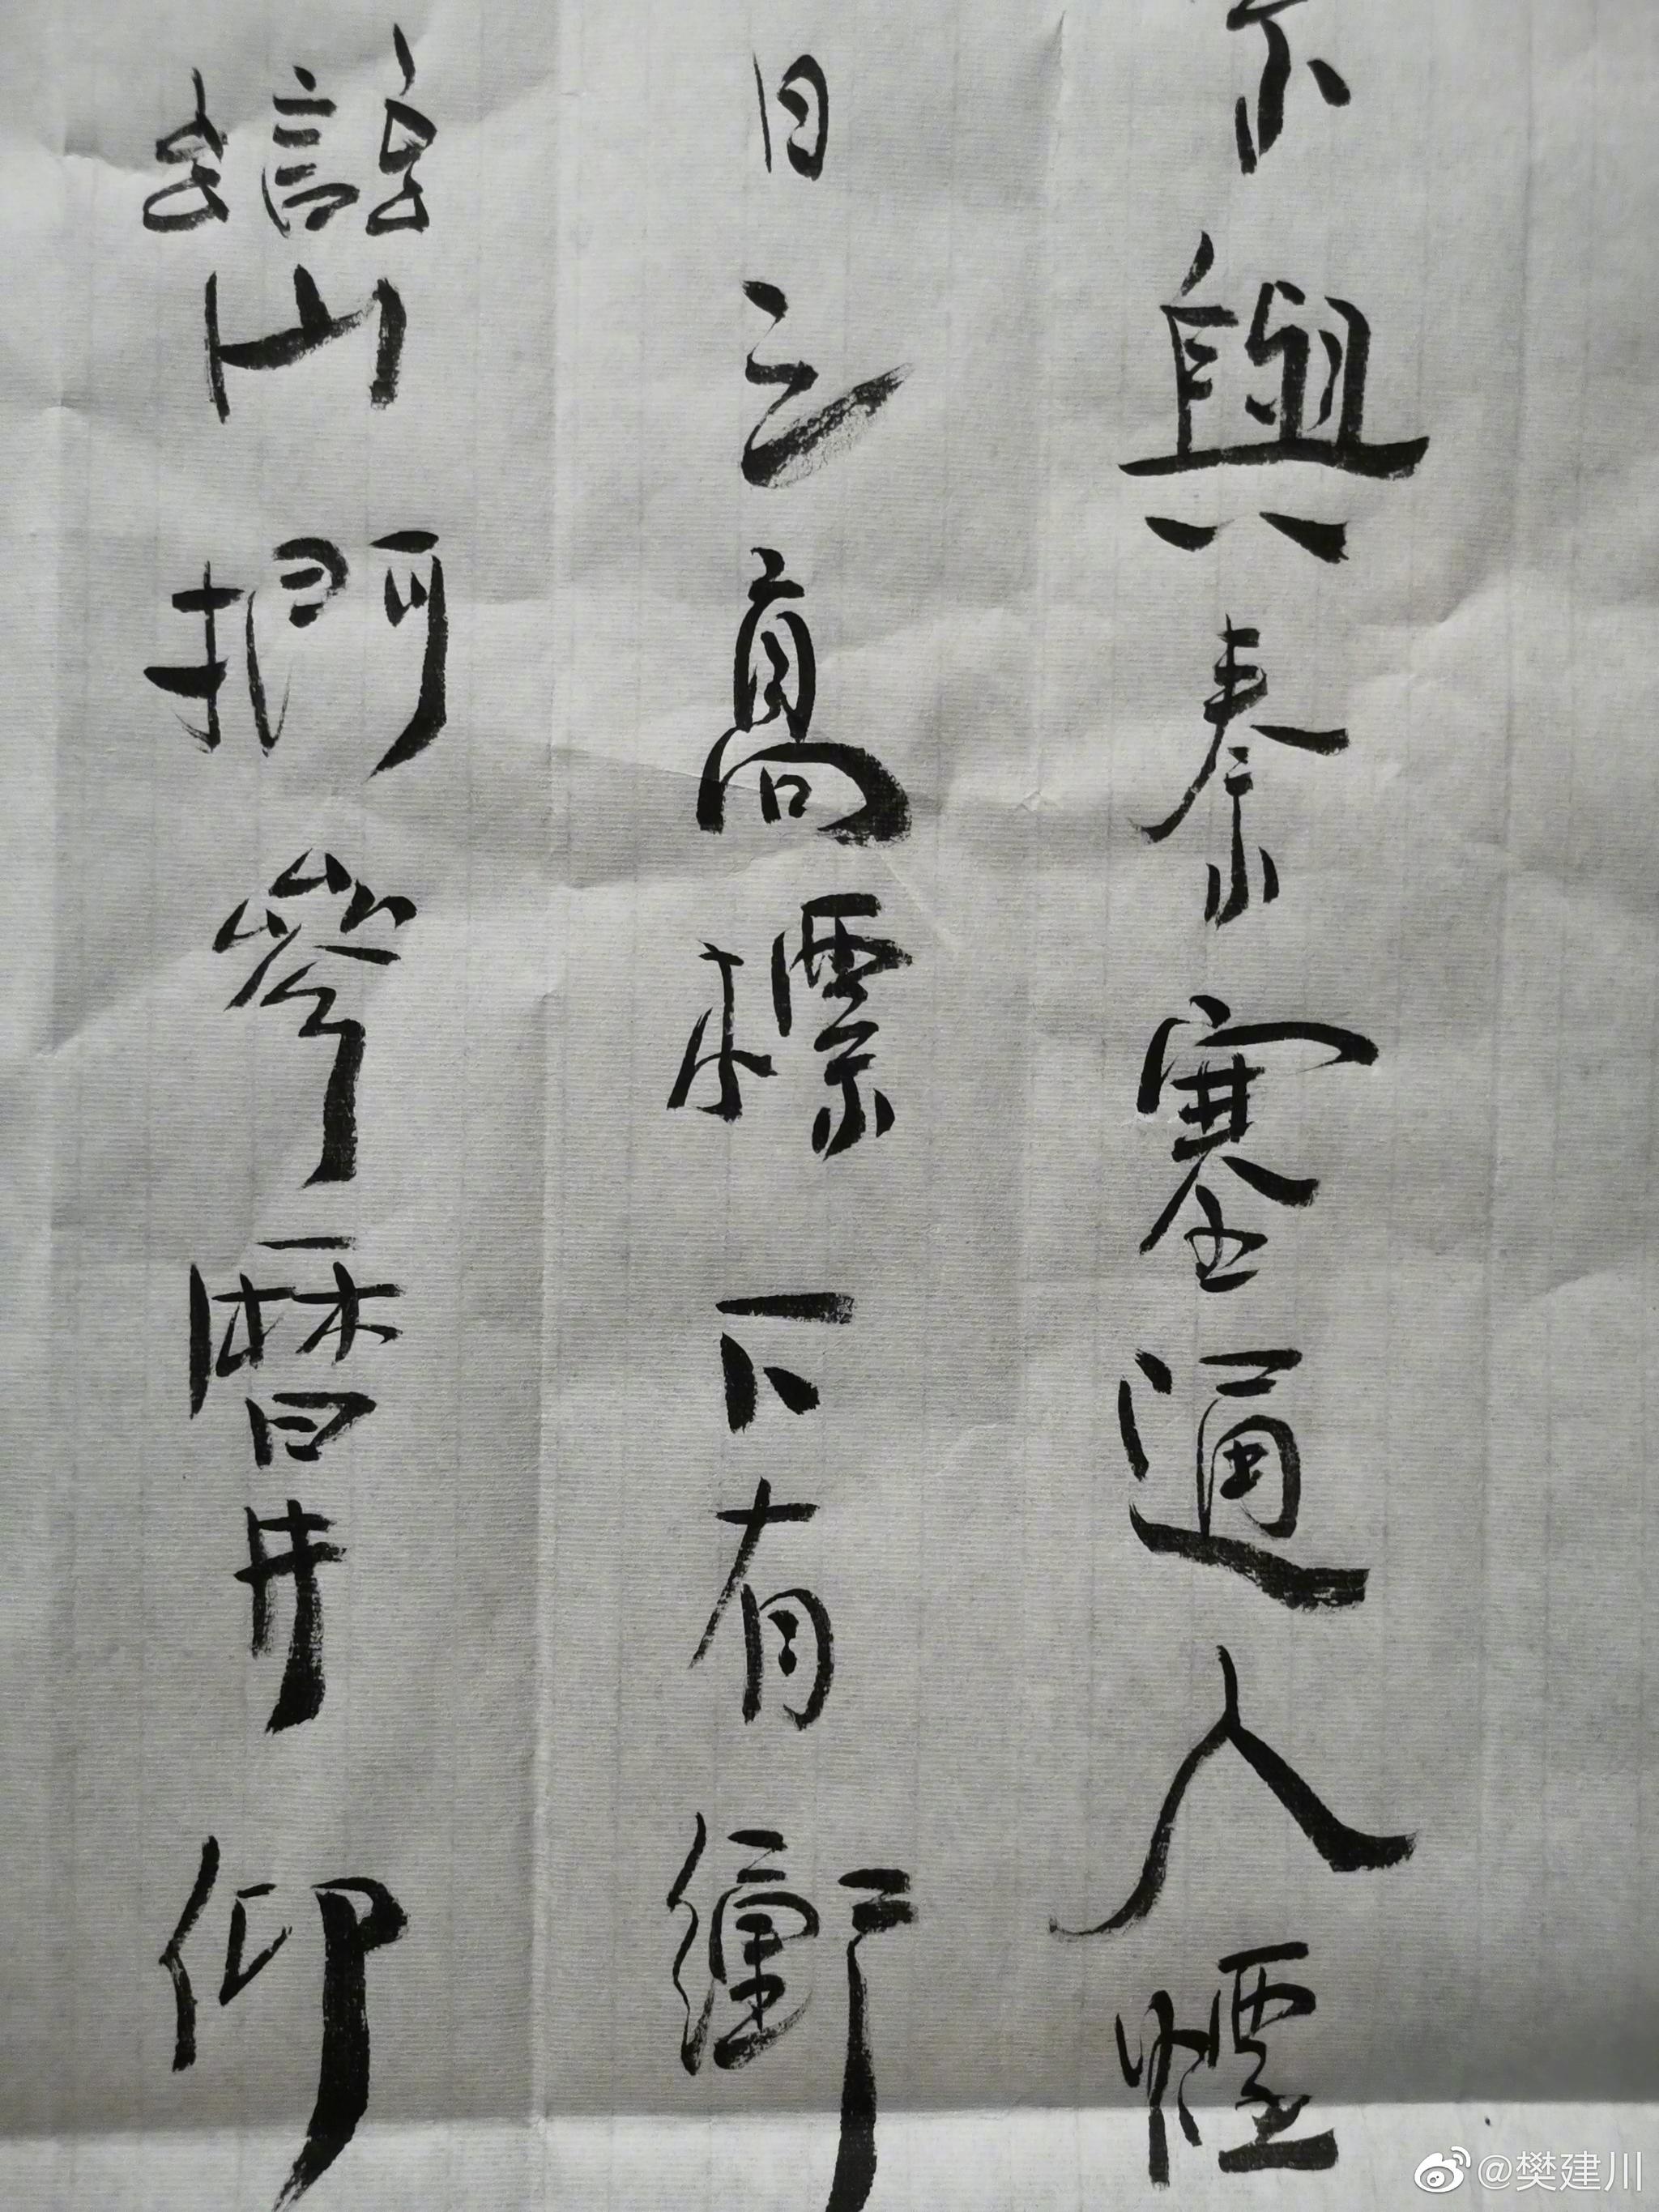 不與秦塞通人煙
日之高標下有衝
巒捫參曆井仰
@樊建川